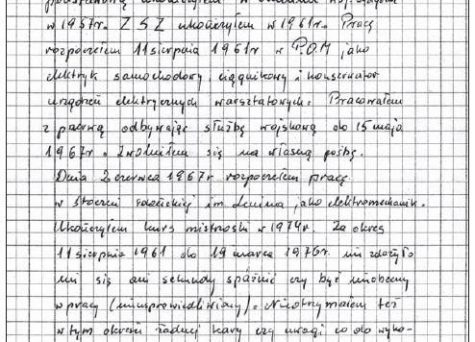 w 1957r. ZSZ ukończyłem w 1961r. Pracę
rozpocząłem 11 sierpnia 1961r w P.O.M jako
elektryk samochodowy, ciągnikowy i konserwator
urządzeń elektrycznych warsztatowych. Pracowałem
z przerwą odbywając służbę wojskową do 15 maja
1967r. Zwolniłem się na własną prośbę.
Dnia 2 czerwca 1967r. rozpocząłem pracę
w Stoczni Gdańskiej im. Lenina, jako elektromechanik.
Ukończyłem kurs mistrzowski w 1974r. Za okres
11 sierpnia 1961 do 19 marca 1976r. nie zdarzyło
mi się ani sekundy spóźnić czy być nieobecny
w pracy (nieusprawiedliwiony). Nie otrzymałem też
w tym okresie żadnej kary czy uwagi co do wyko-